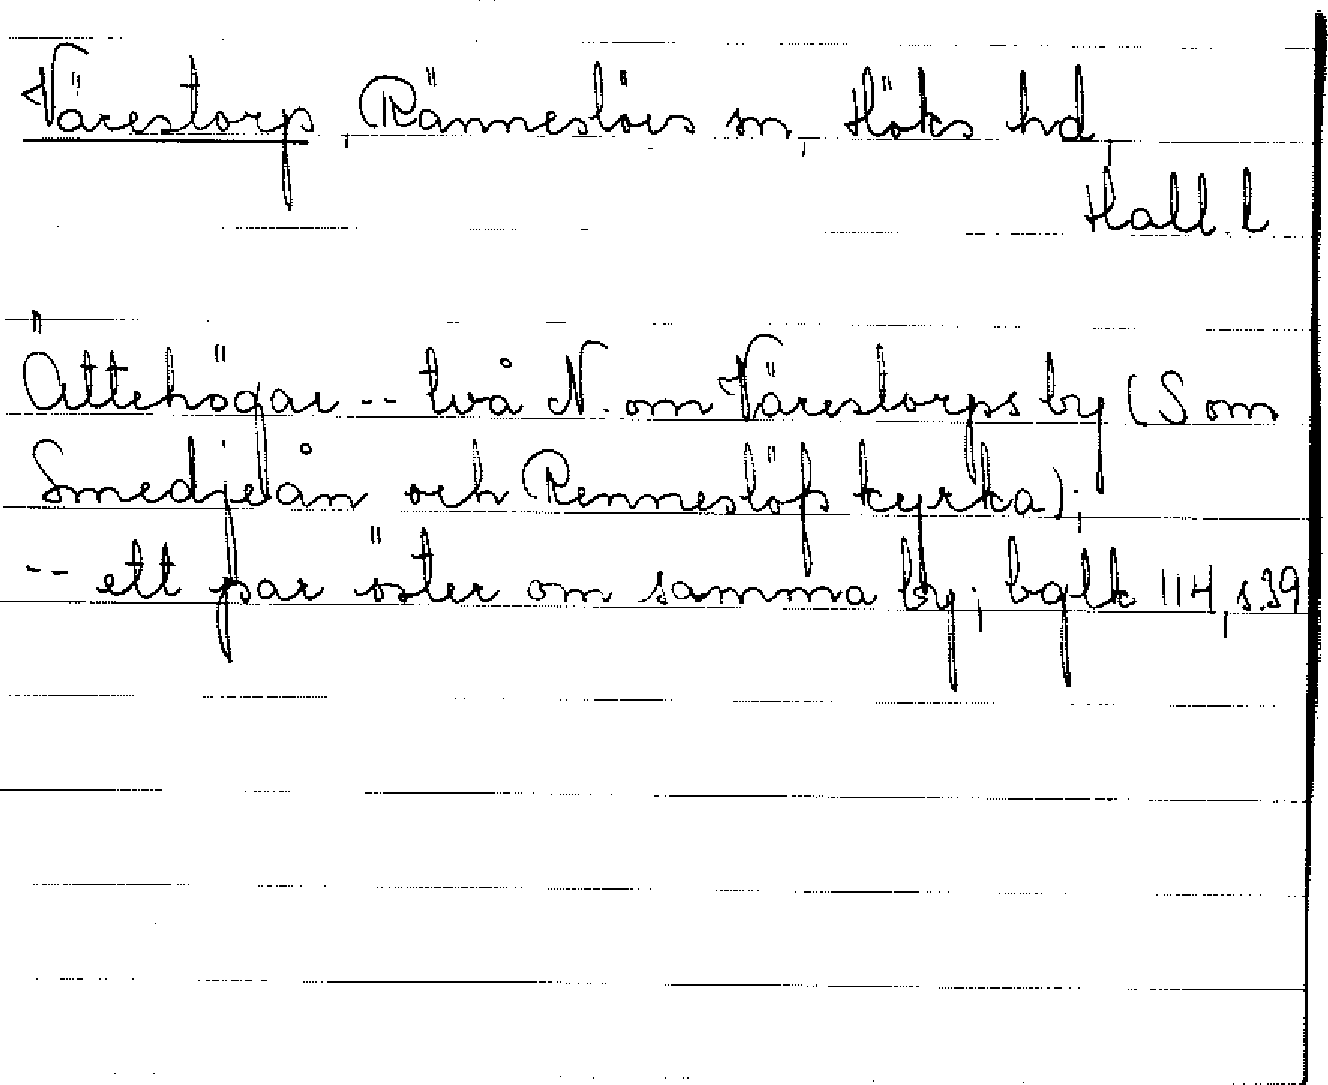 Värestorp, Ränneslövs sn, Höks hd,
Hall. l
Ättehögar -- två N. om Värestorps by (S om
Smedjeån och Renneslöfs kyrka);
-- ett par öster om samma by; bglk 114, s.39